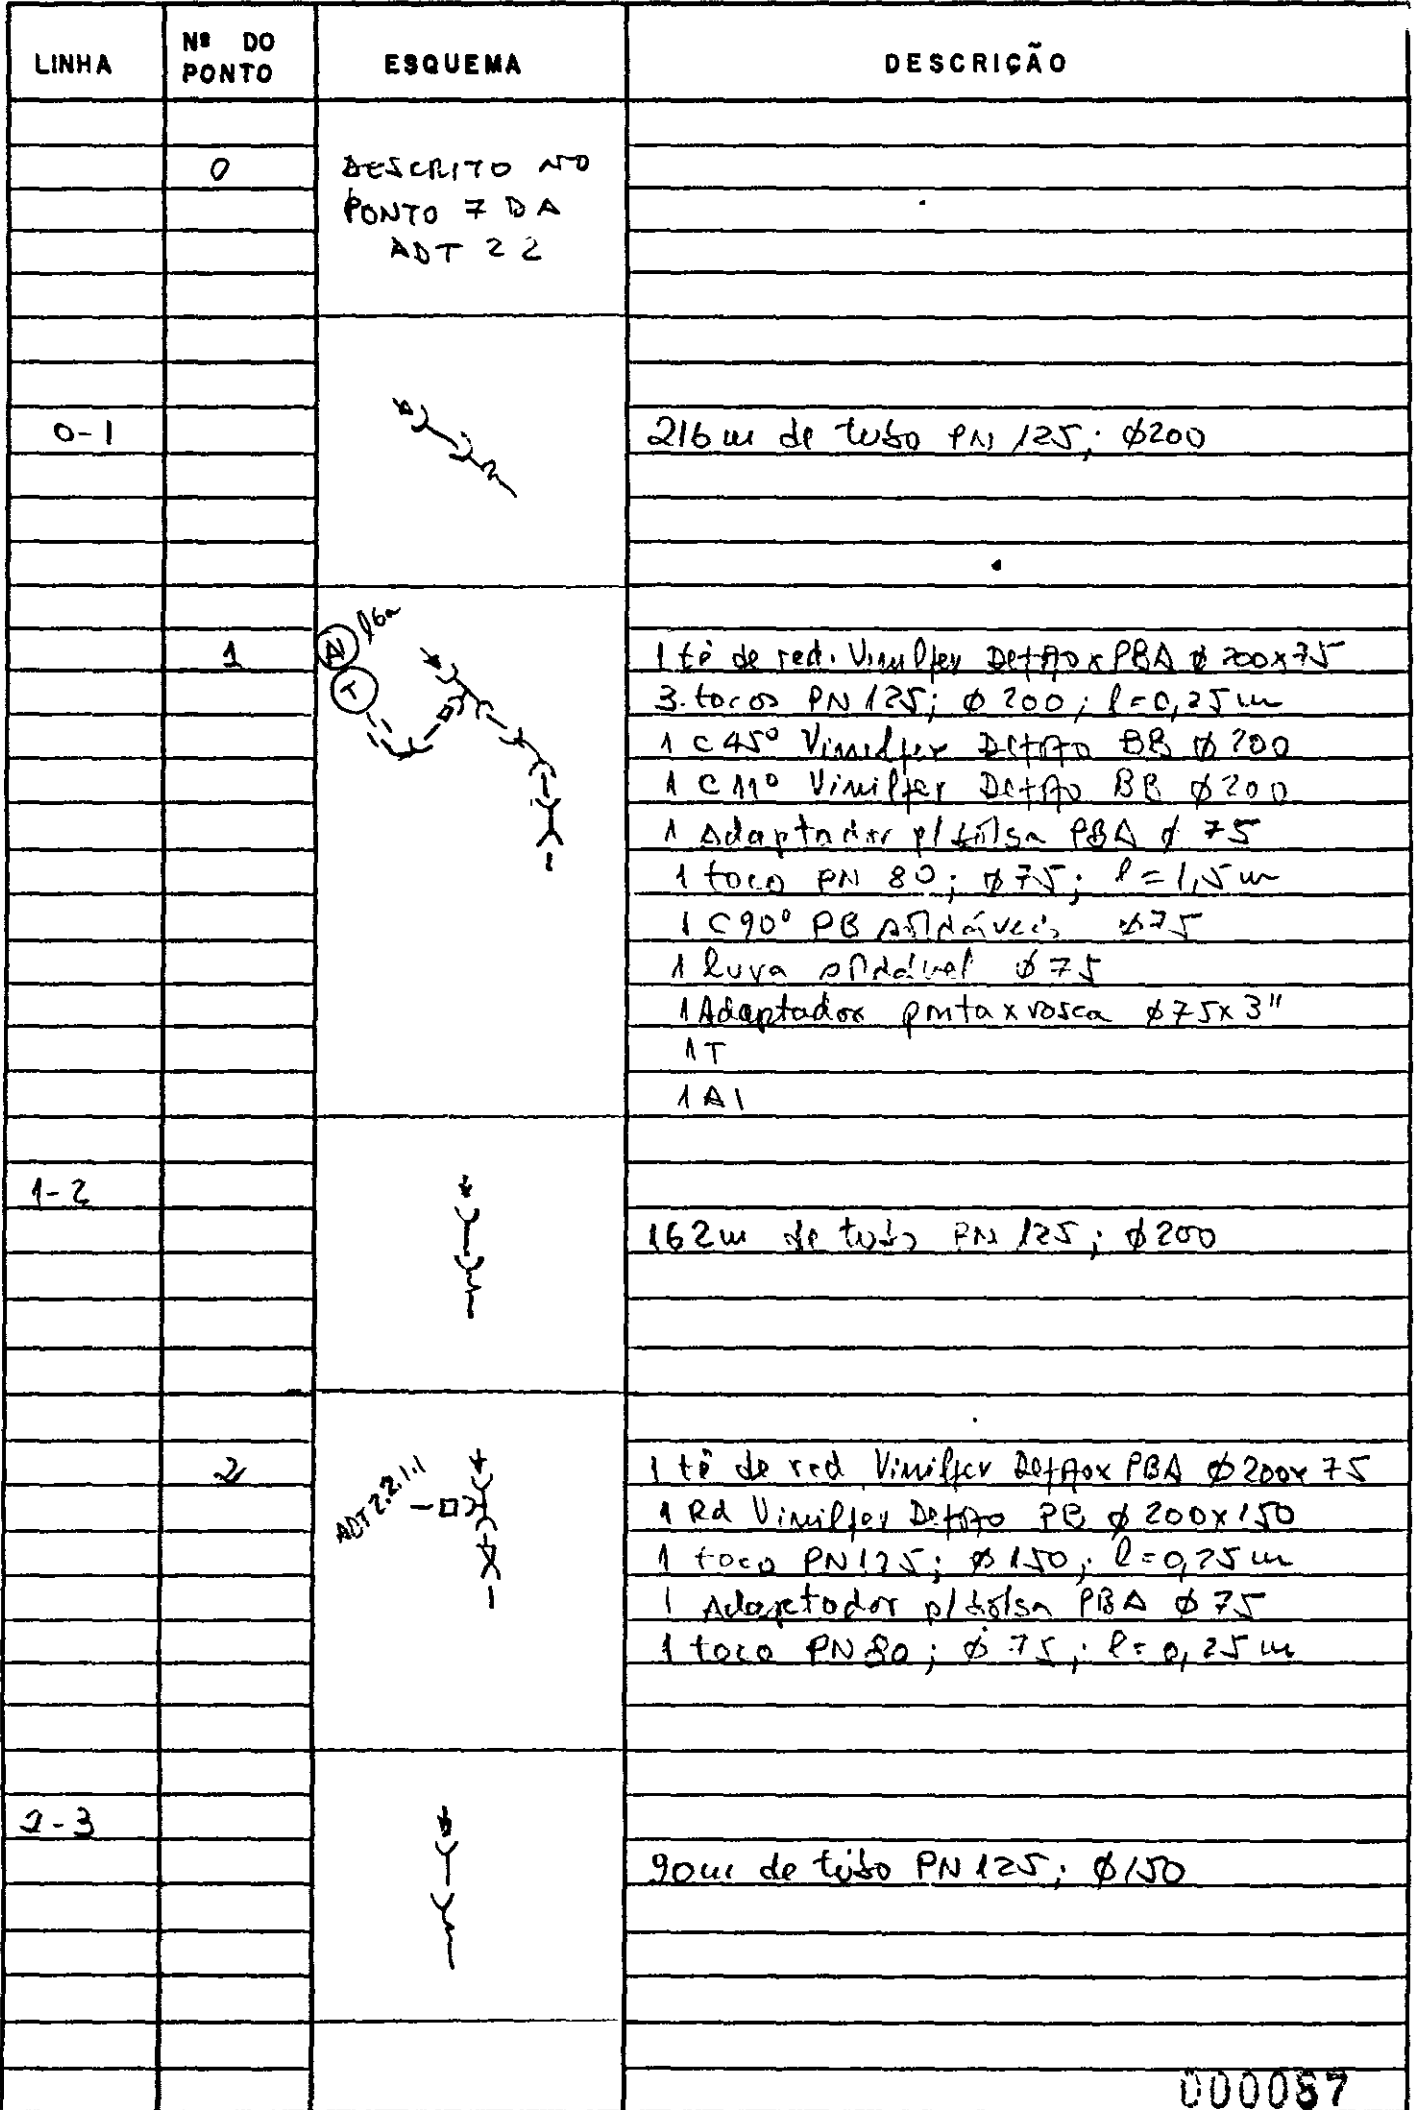 LINHA
Nº DO PONTO
ESQUEMA
DESCRIÇÃO
0
DESCRITO NO
PONTO 7 DA
ADT 2 2
0-1
216 m de tubo PN 125; ø200
1
A1
T
1 tê de red. Vinilfer DeFoFo x PBA ø 200x75
3 tocos PN 125; ø 200; l=0,25 m
1 C 45° Vinilfer DeFoFo BB ø 200
1 C 11° Vinilfer DeFoFo BB ø 200
1 Adaptador p/ bolsa PBA ø 75
1 toco PN 80; ø75; l=1,5 m
1 C 90° PB ø75
1 luva soldável ø 75
1 Adaptador ponta x rosca ø75x3"
1 T
1 A1
1-2
162 m de tubo PN 125; ø200
2
ADT 2.2.1.1
1 tê de red Vinilfer DeFoFo x PBA ø 200x75
1 Rd Vinilfer DeFoFo PB ø 200x150
1 toco PN 125; ø 150; l=0,25 m
1 Adaptador p/ bolsa PBA ø 75
1 toco PN 80; ø 75; l=0,25 m
2-3
90 m de tubo PN 125; ø150
000087